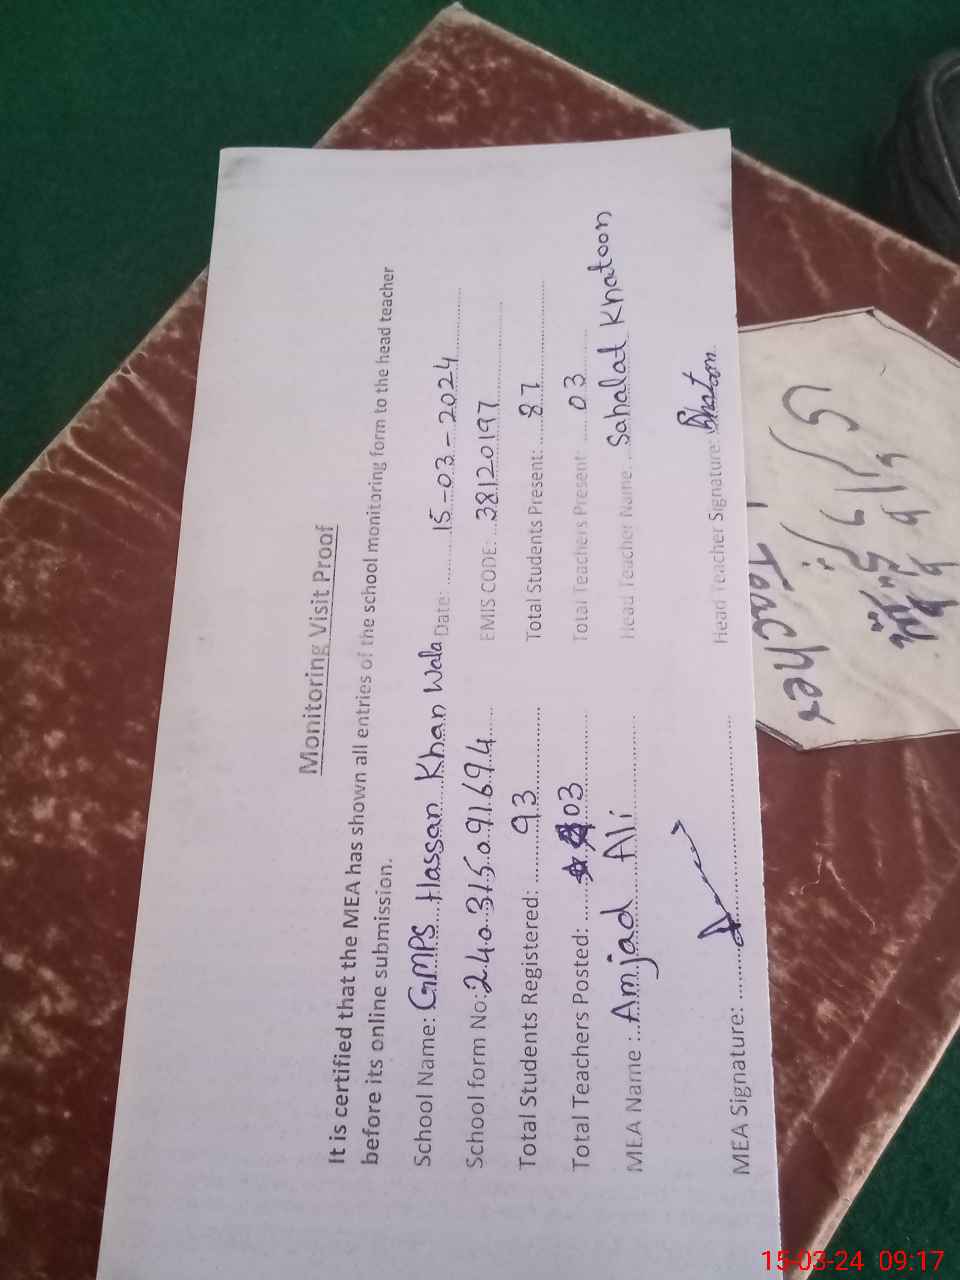 Monitoring Visit Proof
It is certified that the MEA has shown all entries of the school monitoring form to the head teacher
before its online submission.
School Name: GMPS Hassan Khan Wala Date: 15-03-2024
School form No: 240315091694 EMIS CODE: 38120197
Total Students Registered: 93 Total Students Present: 87
Total Teachers Posted: 03 Total Teachers Present: 03
MEA Name : Amjad Ali Head Teacher Name: Sahalat Khatoon
MEA Signature: Head Teacher Signature:
15-03-24 09:17